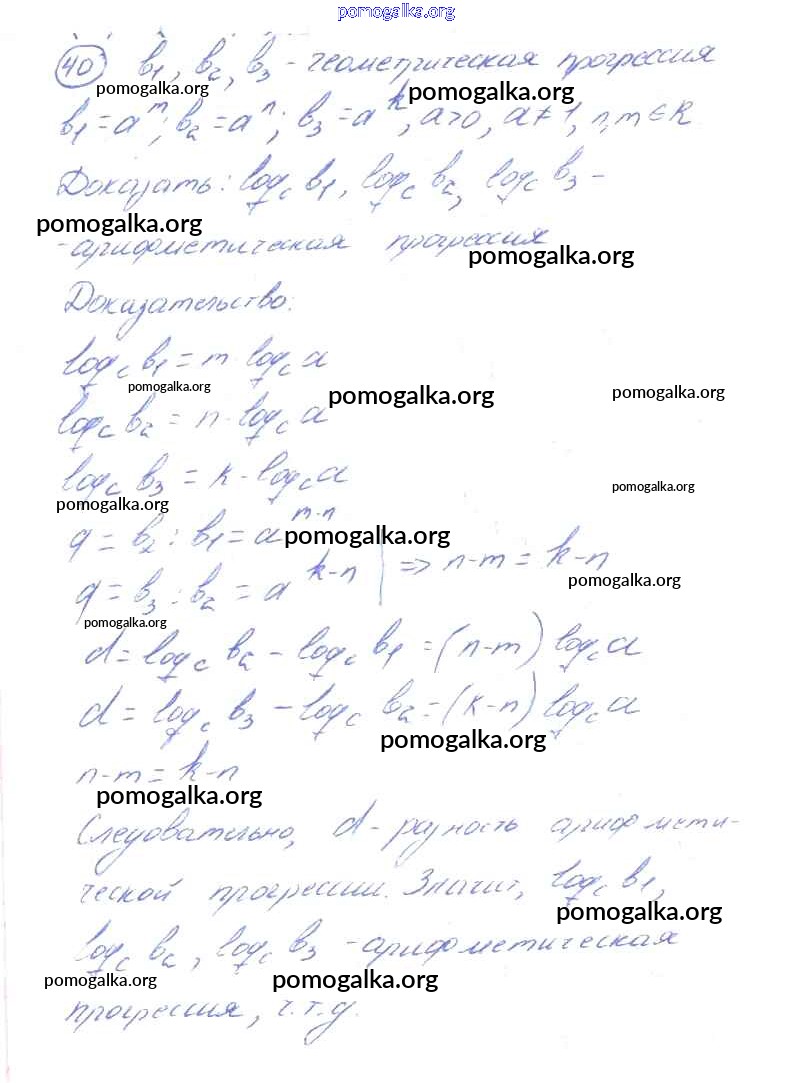 pomogalka.org
40 b₁, b₂, b₃ - геометрическая прогрессия
pomogalka.org pomogalka.org
b₁ = aᵐ; b₂ = aⁿ; b₃ = aᵏ, a>0, a≠1, n,m ∈ R
Доказать: log_c b₁, log_c b₂, log_c b₃ -
pomogalka.org
-арифметическая прогрессия
pomogalka.org
Доказательство:
log_c b₁ = m log_c a
pomogalka.org pomogalka.org pomogalka.org
log_c b₂ = n · log_c a
log_c b₃ = k · log_c a
pomogalka.org pomogalka.org
q = b₂ : b₁ = a^(m-n)
pomogalka.org
q = b₃ : b₂ = a^(k-n) | => n-m = k-n
pomogalka.org
pomogalka.org
d = log_c b₂ - log_c b₁ = (n-m) log_c a
d = log_c b₃ - log_c b₂ = (k-n) log_c a
pomogalka.org
n-m = k-n
pomogalka.org
Следовательно, d - разность арифмети-
ческой прогрессии. Значит, log_c b₁,
pomogalka.org
log_c b₂, log_c b₃ - арифметическая
pomogalka.org pomogalka.org
прогрессия, ч.т.д.